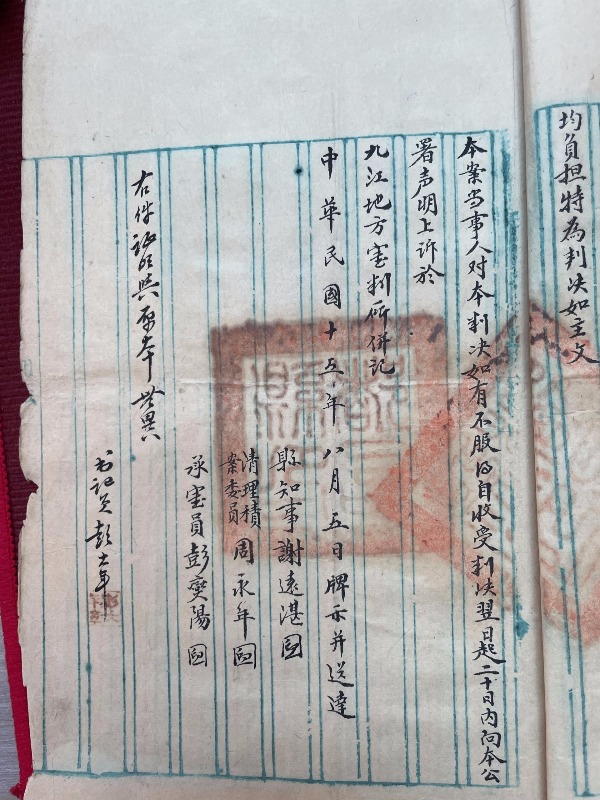 均負担特為判决如主文
本案当事人对本判决如有不服得自收受判决翌日起二十日内向本公
署声明上訴於
九江地方審判所併記
中華民國十五年八月五日牌示并送達
縣知事謝遠湛
清理積案委員周永年
承審員彭奭陽
右件証明與原本無異
书记员彭士年